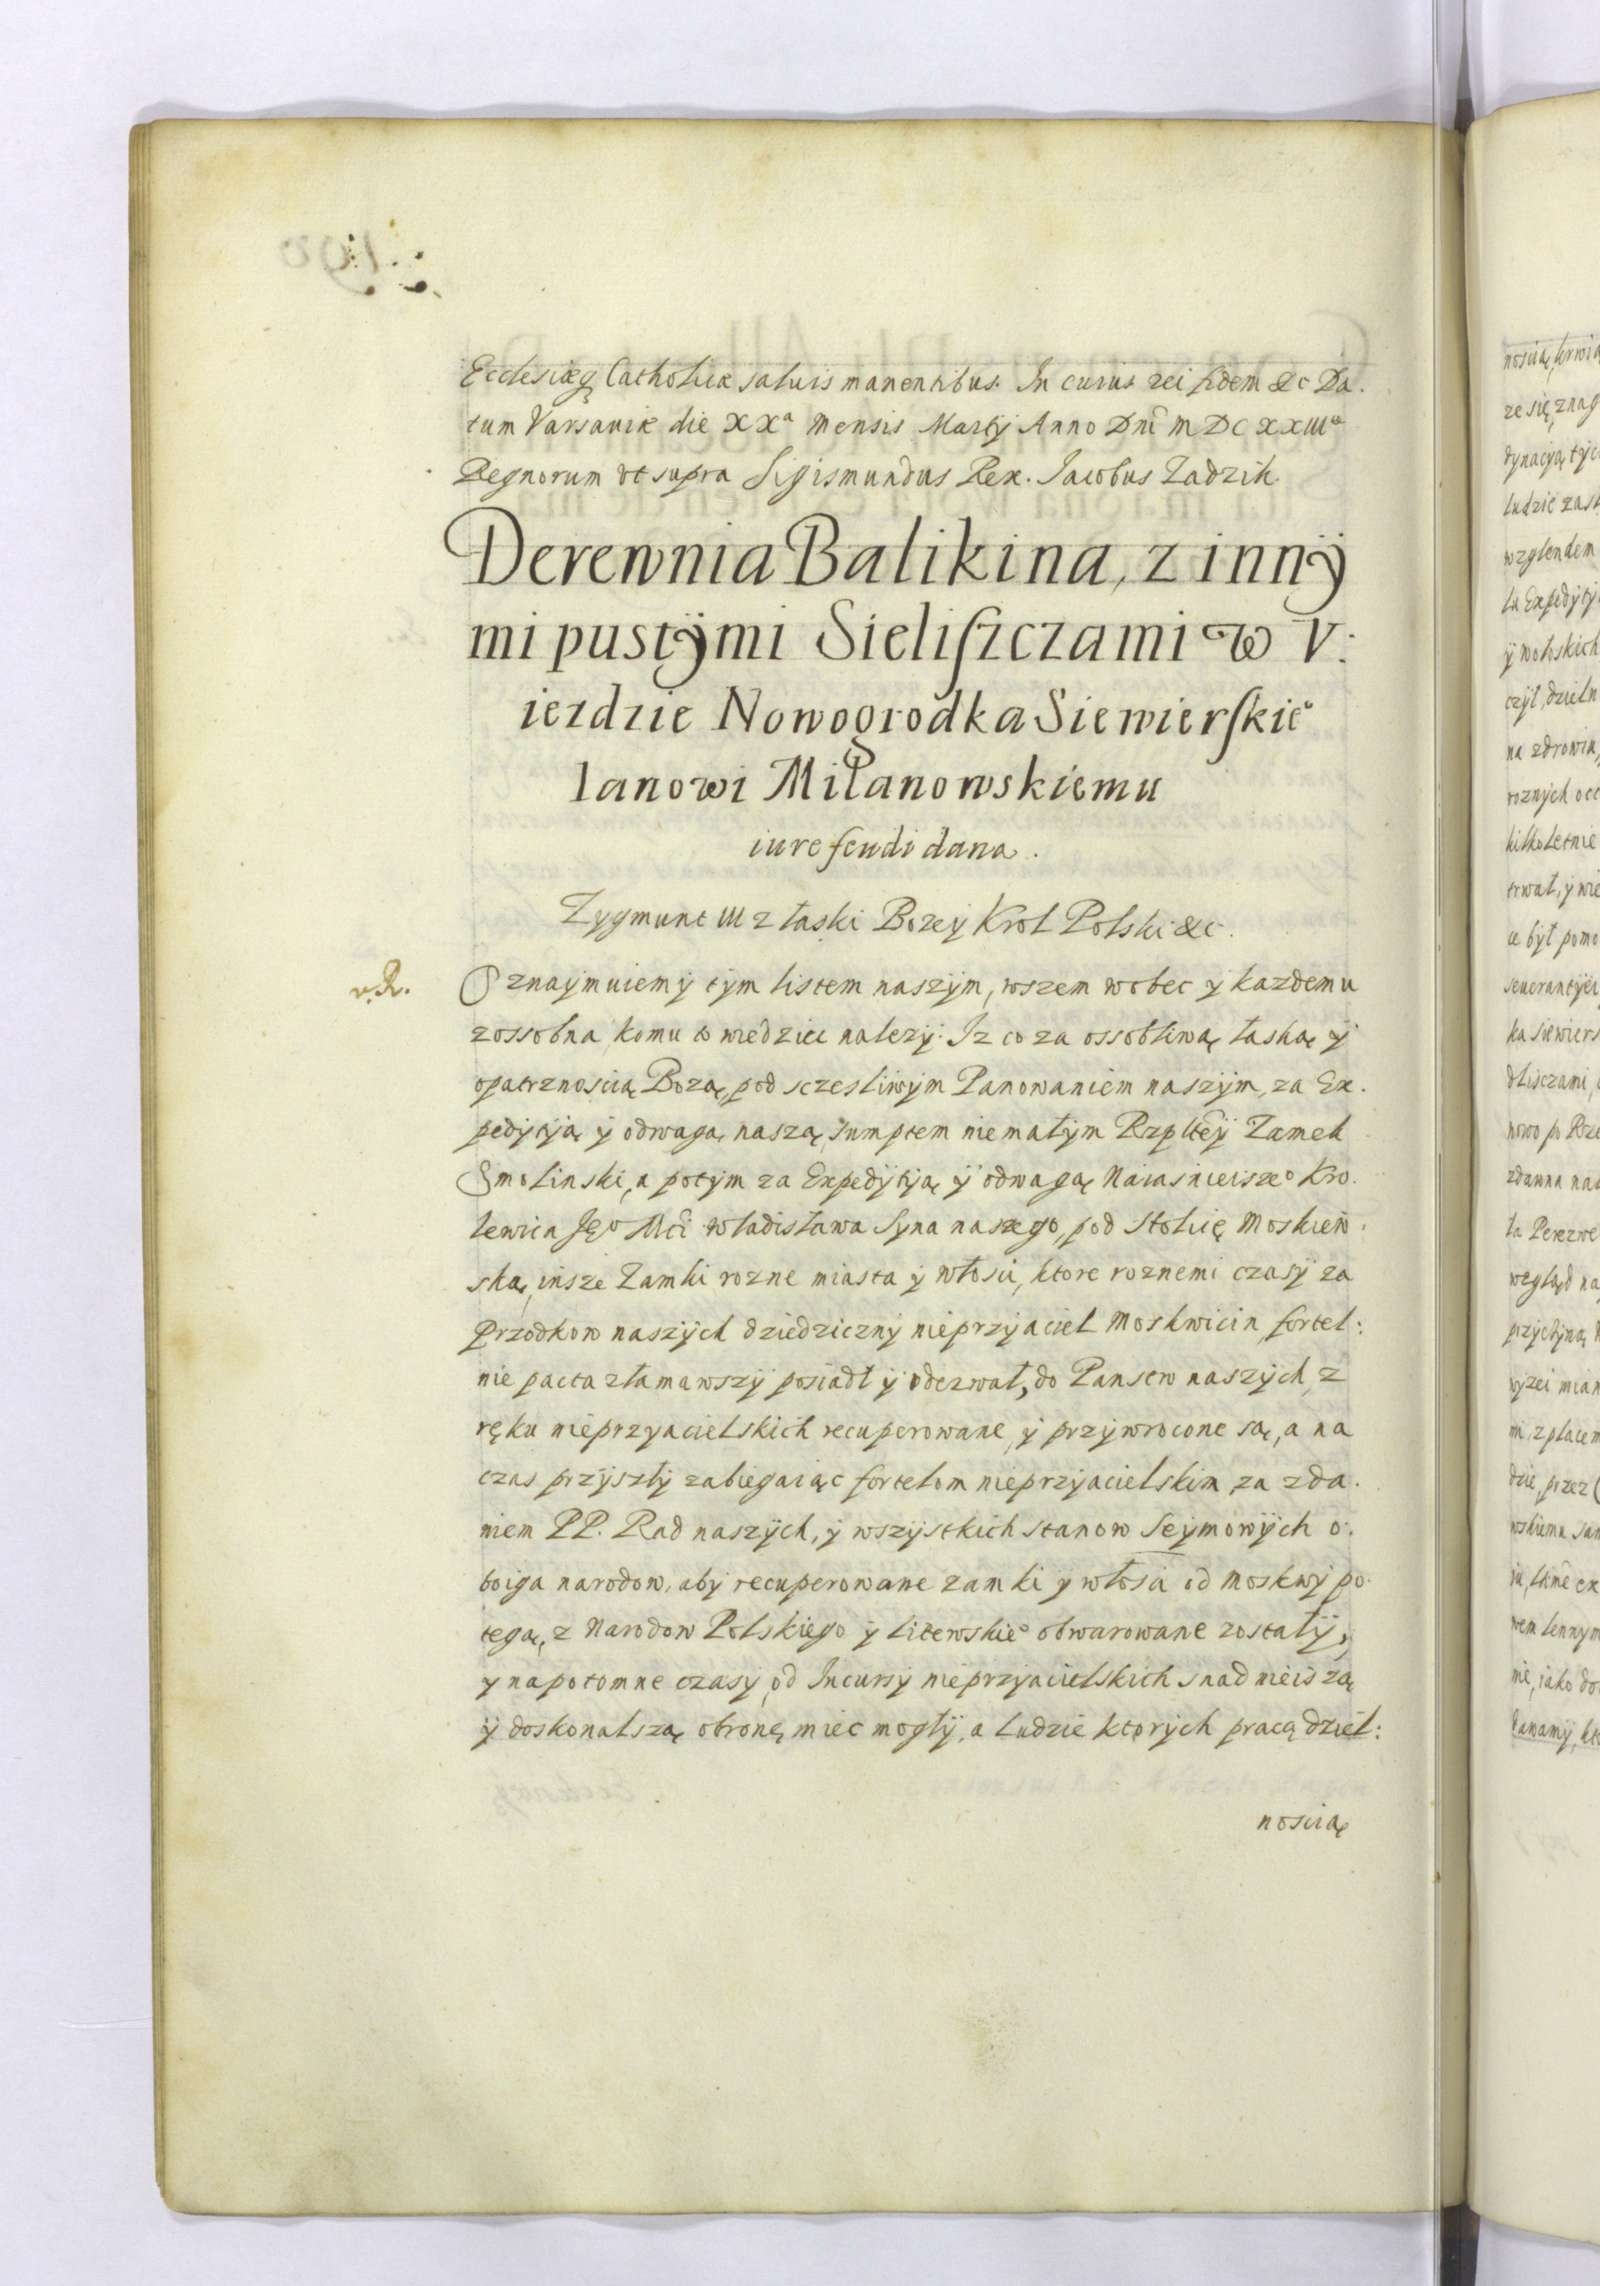 Ecclesiæq Catholicæ saluis manentibus. In cuius rei fidem &c Da.
tum Varsaviæ die XXª Mensis Martÿ Anno Dnı̃ MDCXXIIIº
Regnorum vt supra Sigismundus Rex. Jacobus Zadzik
Derewnia Balikina, z innÿ
mi pustÿmi Sieliszczami w V:
iezdzie Nowogrodka Siewierskieº
Ianowi Milanowskiemu
iure feudi dana.
Zygmunt III z łaski Bozeÿ Krol Polski &c.
v. R.
Oznaymuiemÿ tÿm listem naszÿm, wszem wobec ÿ kazdemu
zossobna, komu to wiedziec nalezÿ. Iz co za ossobliwą łaską ÿ
opatrznoscią Bozą, pod sczesliwÿm Panowaniem naszÿm, za Ex.
pedÿtÿą ÿ odwagą naszą, sumptem niemałÿm Rzpltẽÿ Zamek
Smolinski, a potÿm za Expedÿtÿą ÿ odwagą Naiasnieiszeº Kro.
lewica Jeº Mći Władisława Syna naszego, pod Stolicę Moskiew.
ską, insze Zamki rozne miasta ÿ włosci, ktore roznemi czasÿ za
Przodkow naszÿch dziedzicznÿ nieprzÿiaciel Moskwicin fortel:
nie pacta złamawszÿ posiadł ÿ oderwał, do Panstw naszÿch z
ręku nieprzyacielskich recuperowane, ÿ przÿwrocone są, a na
czas przÿszłÿ zabiegaiąc fortelom nieprzÿacielskim, za zda.
niem PP. Rad naszÿch, ÿ wszÿstkich stanow Seÿmowÿch o.
boiga narodow, abÿ recuperowane zamki ÿ włosci od Moskwÿ po.
tegą, z Narodow Polskiego ÿ Litewskieº obwarowane zostałÿ,
y napotomne czasÿ, od Incursÿ nieprzÿacielskich snadnieiszą
ÿ doskonalszą obronę miec mogłÿ, a ludzie ktorÿch pracą dziel:
noscią